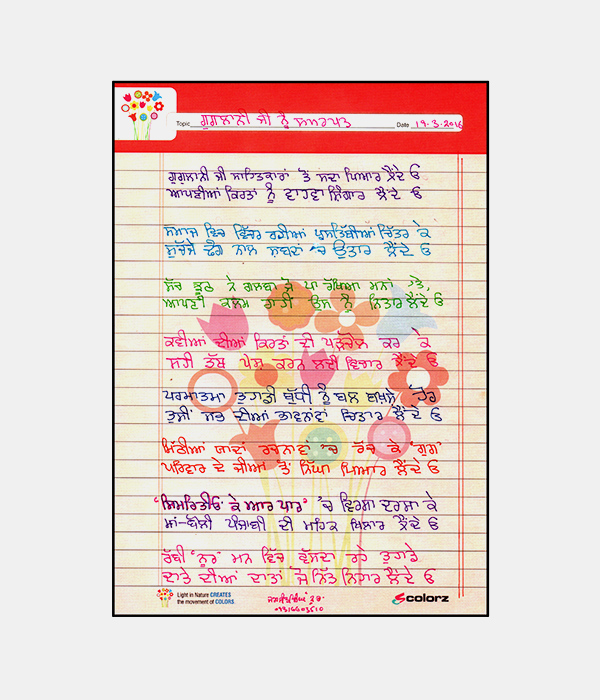 Topic ਗੁਗਲਾਨੀ ਜੀ ਨੂੰ ਸਮਰਪਤ Date 19.3.2016
ਗੁਗਲਾਨੀ ਜੀ ਸਾਹਿਤਕਾਰਾਂ ਤੋਂ ਸਦਾ ਪਿਆਰ ਲੈਂਦੇ ਓ
ਆਪਣੀਆਂ ਕਿਰਤਾਂ ਨੂੰ ਵਾਹਵਾ ਸ਼ਿੰਗਾਰ ਲੈਂਦੇ ਓ
ਸਮਾਜ ਵਿਚ ਵਿੱਚਰ ਰਹੀਆਂ ਪ੍ਰਸਥਿੱਤੀਆਂ ਚਿੱਤਰ ਕੇ
ਸੁਚੱਜੇ ਢੰਗ ਨਾਲ ਸ਼ਬਦਾਂ 'ਚ ਉਤਾਰ ਲੈਂਦੇ ਓ
ਸੱਚ ਝੂਠ ਨੇ ਗਲਬਾ ਜੋ ਪਾ ਰੱਖਿਆ ਮਨਾਂ ਉਤੇ,
ਆਪਣੀ ਕਲਮ ਰਾਹੀਂ ਉਸ ਨੂੰ ਨਿਤਾਰ ਲੈਂਦੇ ਓ
ਕਵੀਆਂ ਦੀਆਂ ਕਿਰਤਾਂ ਦੀ ਪੜਚੋਲ ਕਰ ਕੇ
ਸਹੀ ਤੱਥ ਪੇਸ਼ ਕਰਨ ਲਈ ਵਿਚਾਰ ਲੈਂਦੇ ਓ
ਪਰਮਾਤਮਾ ਤੁਹਾਡੀ ਬੁੱਧੀ ਨੂੰ ਬਲ ਬਖਸ਼ੇ ਹੋਰ
ਤੁਸੀਂ ਸਭ ਦੀਆਂ ਭਾਵਨਾਵਾਂ ਚਿਤਾਰ ਲੈਂਦੇ ਓ
ਮਿੱਠੀਆਂ ਯਾਦਾਂ ਰਚਨਾਵਾਂ 'ਚ ਰੱਚ ਕੇ 'ਗੁਗ'
ਪਰਿਵਾਰ ਦੇ ਜੀਆਂ ਤੋਂ ਨਿੱਘਾ ਪਿਆਰ ਲੈਂਦੇ ਓ
"ਸਿਮਰਿਤੀਓਂ ਕੇ ਆਰ ਪਾਰ" 'ਚ ਵਿਰਸਾ ਦਰਸਾ ਕੇ
ਮਾਂ-ਬੋਲੀ ਪੰਜਾਬੀ ਦੀ ਮਹਿਕ ਖਿਲਾਰ ਲੈਂਦੇ ਓ
ਰੱਬੀ "ਨੂਰ" ਮਨ ਵਿੱਚ ਵੱਸਦਾ ਰਹੇ ਤੁਹਾਡੇ
ਦਾਤੇ ਦੀਆਂ ਦਾਤਾਂ ਜੋ ਨਿੱਤ ਨਿਹਾਰ ਲੈਂਦੇ ਓ
Light in Nature CREATES
the movement of COLORS.
Scolorz